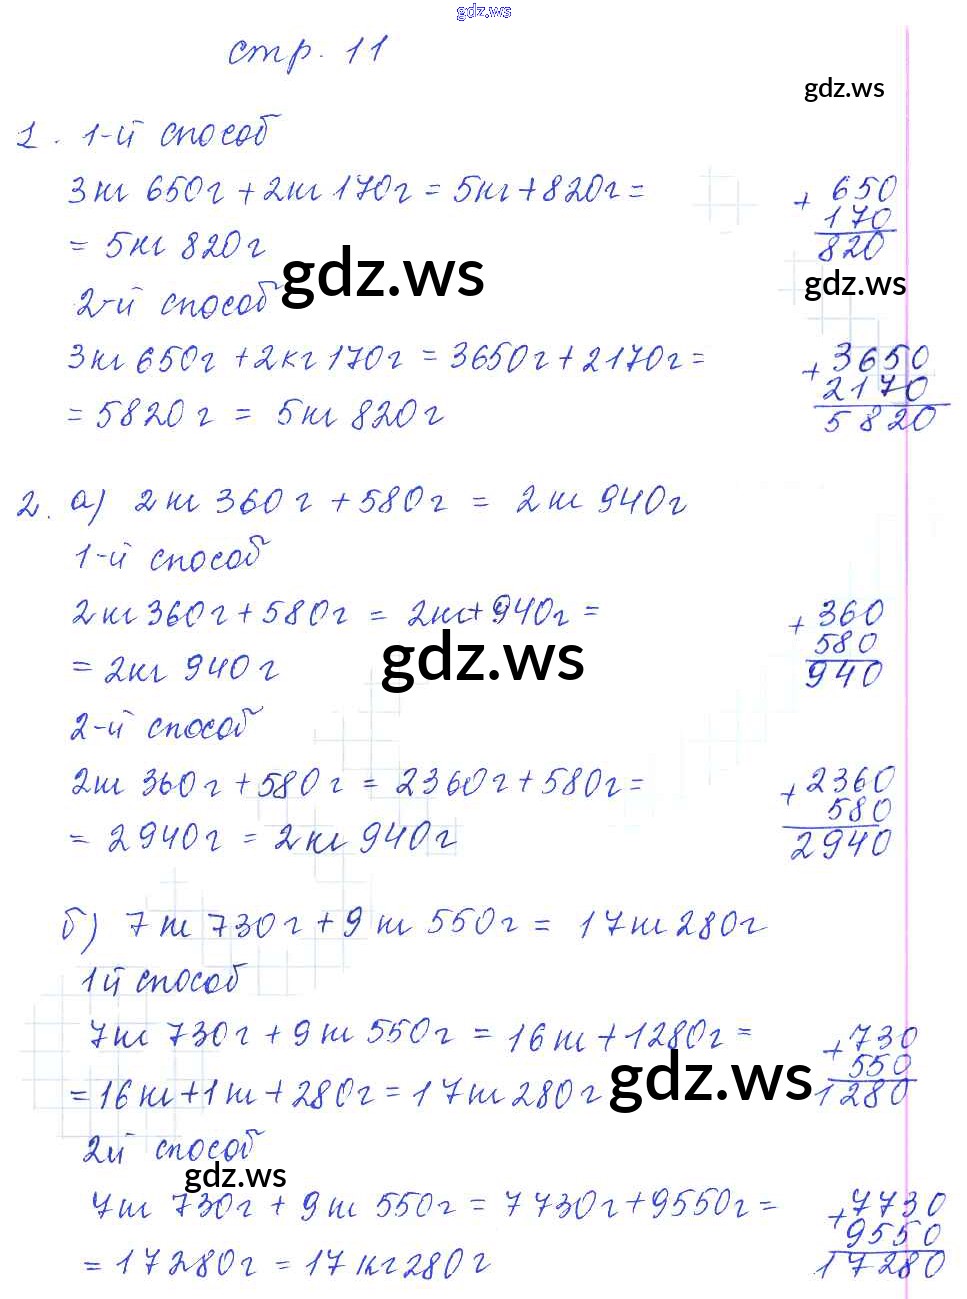 gdz.ws
стр. 11
gdz.ws
1. 1-й способ
3кг 650г + 2кг 170г = 5кг + 820г =
= 5кг 820г
+ 650
170
820
gdz.ws
gdz.ws
2-й способ
3кг 650г + 2кг 170г = 3650г + 2170г =
= 5820г = 5кг 820г
+ 3650
2170
5820
2. а) 2кг 360г + 580г = 2кг 940г
1-й способ
2кг 360г + 580г = 2кг + 940г =
= 2кг 940г
+ 360
580
940
gdz.ws
2-й способ
2кг 360г + 580г = 2360г + 580г =
= 2940г = 2кг 940г
+ 2360
580
2940
б) 7кг 730г + 9кг 550г = 17кг 280г
1й способ
7кг 730г + 9кг 550г = 16кг + 1280г =
= 16кг + 1кг + 280г = 17кг 280г
+ 730
550
1280
gdz.ws
2й способ
gdz.ws
7кг 730г + 9кг 550г = 7730г + 9550г =
= 17280г = 17кг 280г
+ 7730
9550
17280